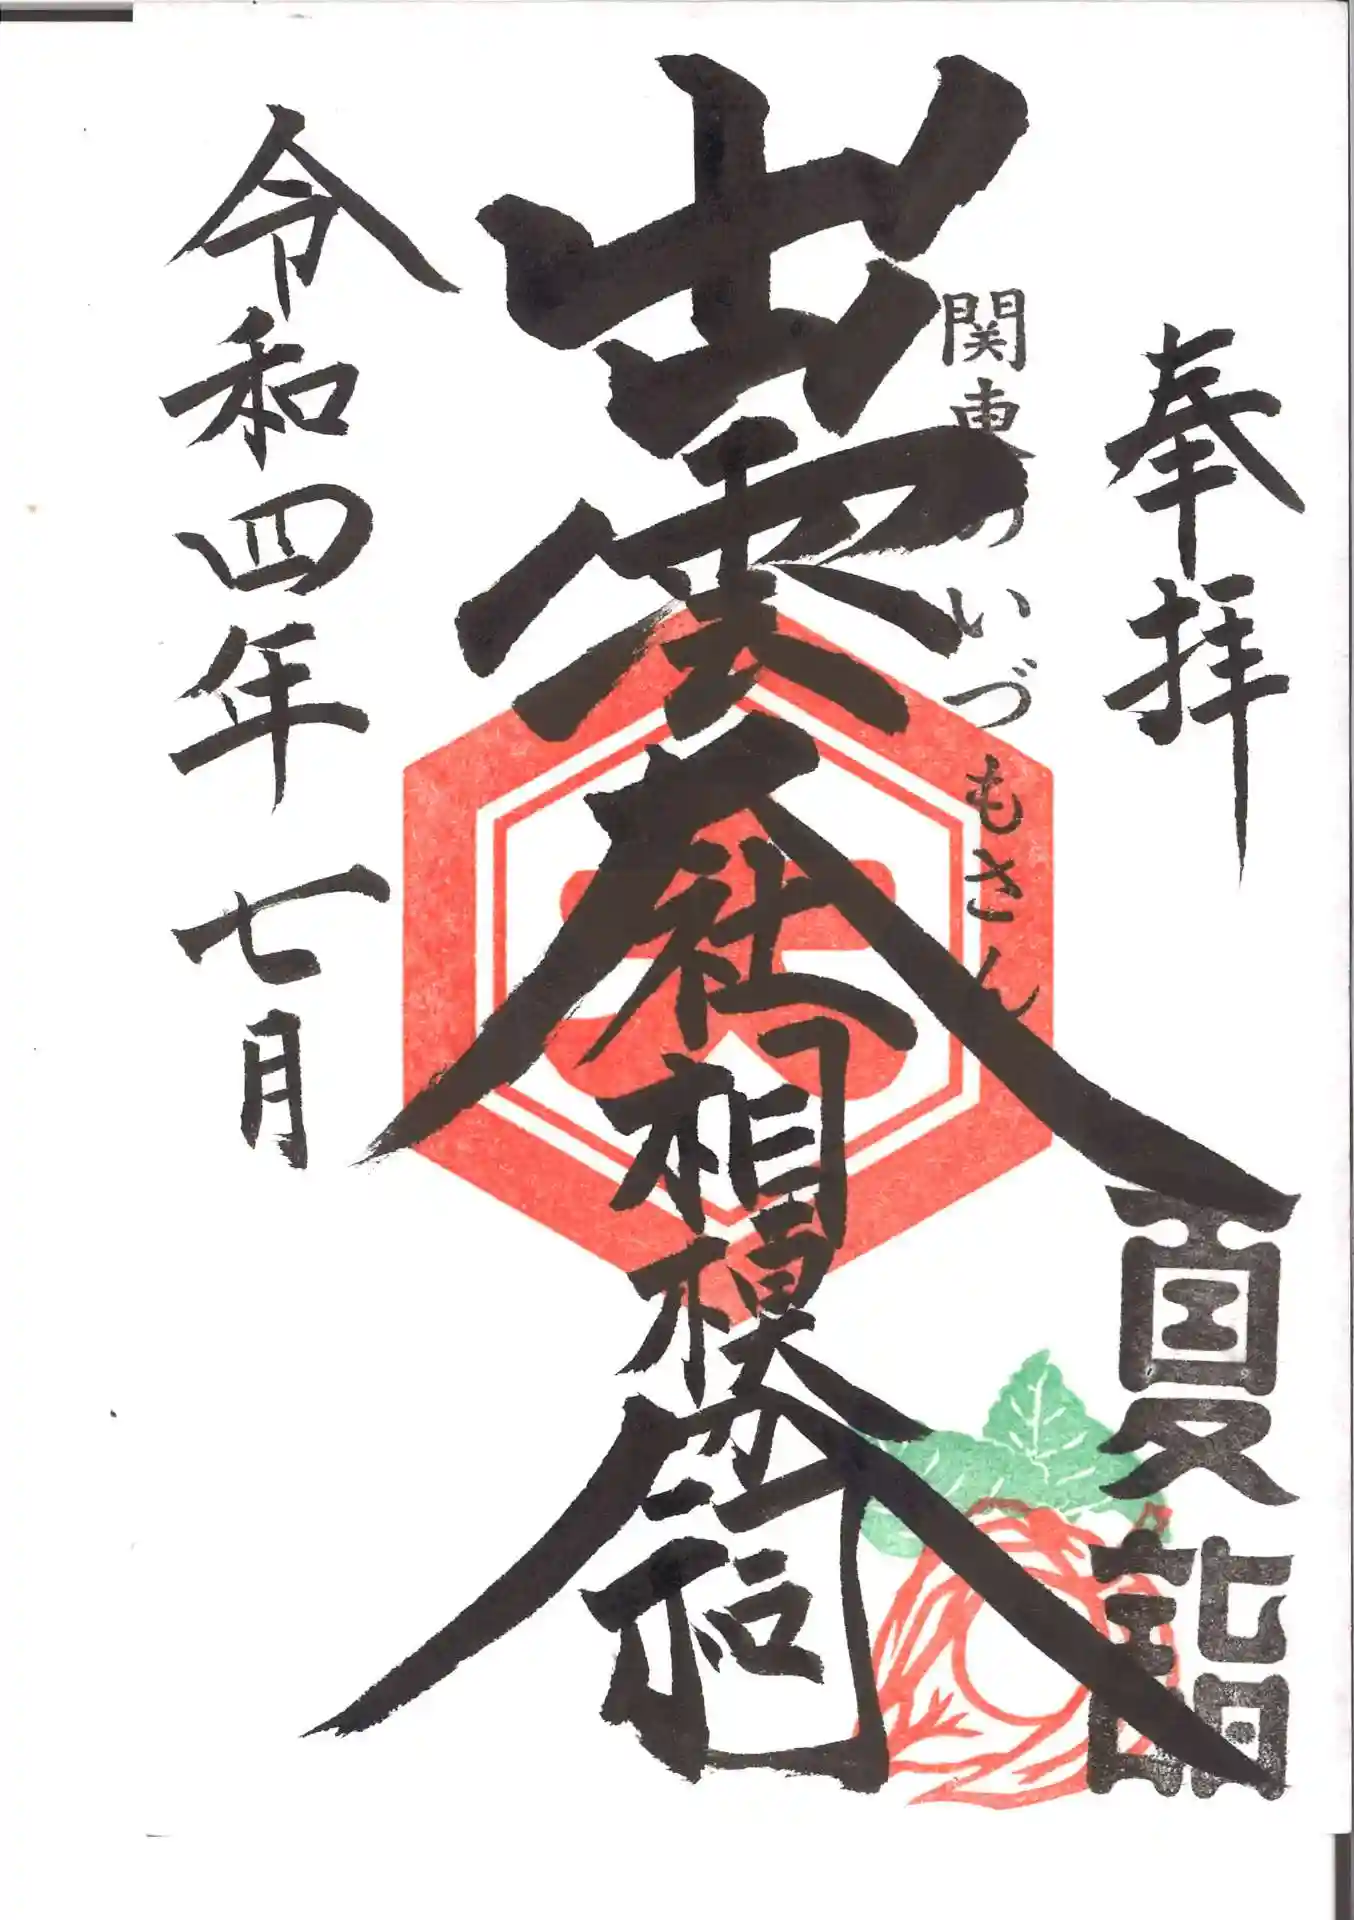 奉拝
夏詣
関東のいづもさん
出雲大社相模分祠
令和四年七月